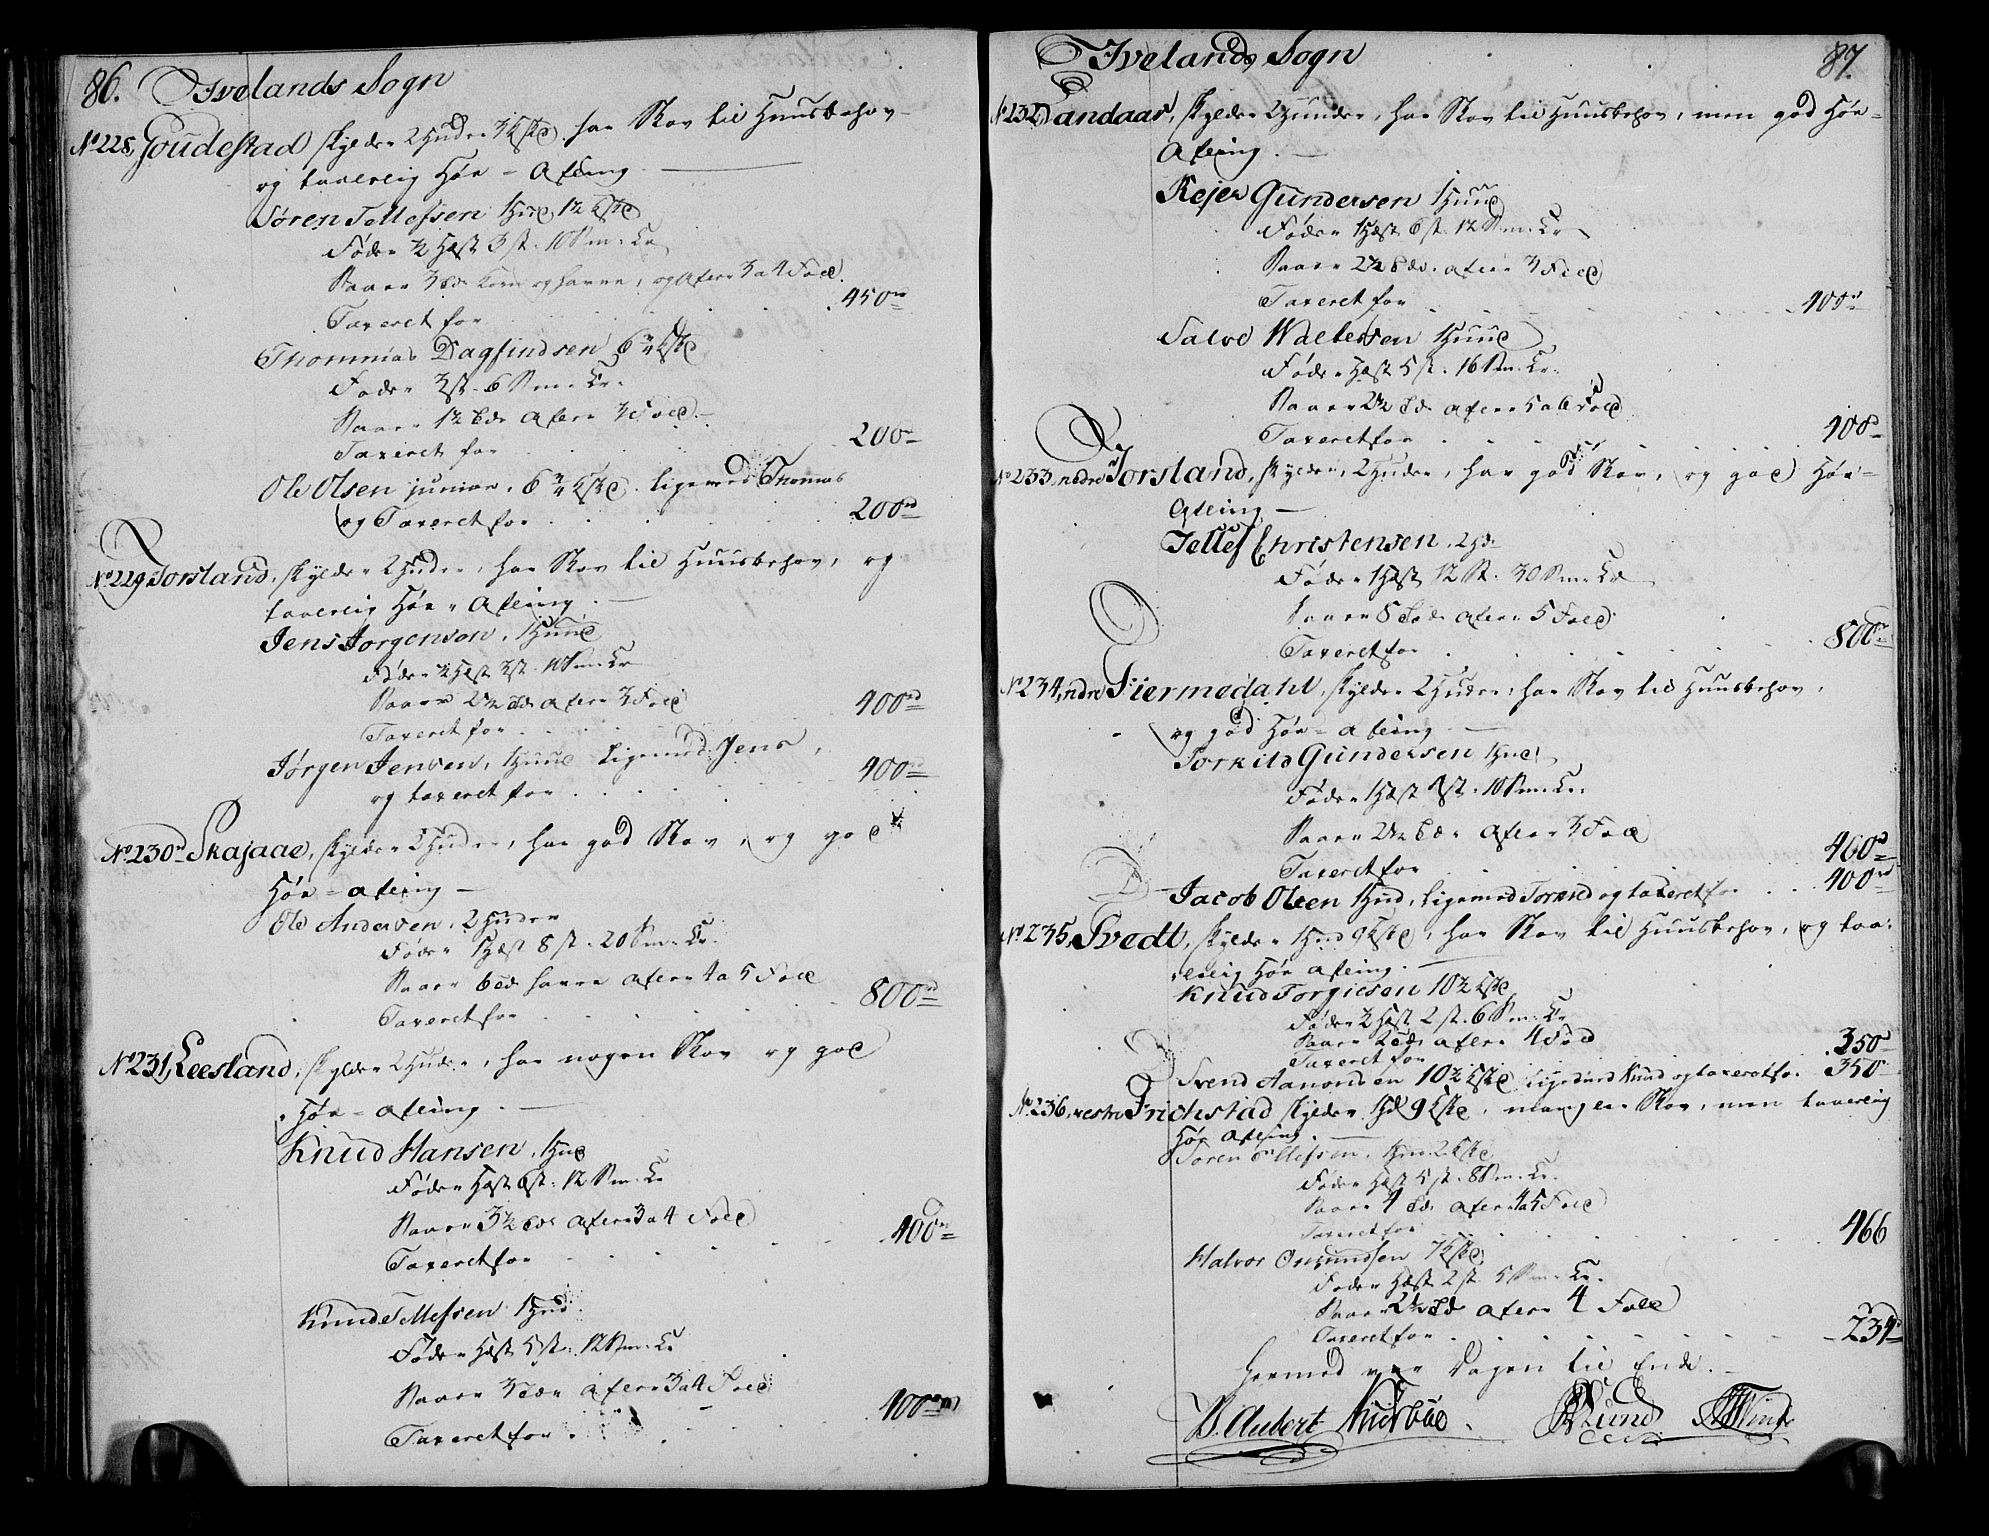 86. Ivelands Sogn
No 228, Goudestad skylder 2 Huder 3 Kske, har Skov til Huusbehov
og taalelig Høe-Avling.
Søren Tellefsen 1 Hud, 1½ Kske
Føder ½ Hæst 3 st. 10 Sm: Cr
Saaer 3 Td Korn og havre, og Avler 3 a 4 Fold
Taxeret for . . . 450rd
Thommas Dagfindsen 6¾ Kske
Føder 3 st. 6 Sm: Cr.
Saaer 1½ Td Avler 3 Fold.
Taxeret for . . . 200rd
Ole Olsen junior, 6¾ Kske. ligemed Thommas
og Taxeret for . . . 200rd
No 229, Torsland, skylder 2 Huder, har Skov til Huusbehov, og
taalelig Høe-Avling.
Jens Jorgenson, 1 Hud
Føder ½ Hest 3 st. 10 Sm: Cr
Saaer 2½ Td Avler 3 Fold
Taxeret for . . . 400rd
Jørgen Jensen, 1 Hud ligemed Jens,
og taxeret for . . . 400rd
No 230, Skajaae, skylder 2 Huder, har god Skov, og god
Høe-avling
Ole Andersen, 2 Huder
Føder 1 Hæst 8 st. 20 Sm: Cr.
Saaer 6 Td havre avler 4 a 5 Fold
Taxeret for . . . 800rd
No 231, Leesland, skylder 2 Huder, har nogen Skov og god
Høe-avling.
Knud Hansen, 1 Hud
Føder Hæst 6 st. 12 Sm: Cr
Saaer 3½ Td avler 3 a 4 Fold
Taxeret for . . . 400rd
Knud Tellefsen 1 Hud
Føder Hæst 5 st: 12 Sm: Cr
Saaer 3 Td avler 3 a 4 Fold
Taxeret for . . . 400rd
Ivelands Sogn 87.
No 232 Landaas, skylder 2 Huuder, har Skov til Huusbehov, men god Høe-
Avling.
Rejer Gundersen 1 Huud
Føder 1 Hæst 6 st. 12 Sm: Cr
Saaer 2½ Td. avler 3 Fold
Taxeret for . . . 400rd
Salve Woletsen 1 Huud
Føder Hæst 5 st. 16 Sm: Cr.
Saaer 2½ Td avler 5 a 6 Fold
Taxeret for . . . 400rd
No 233 nedre Torsland, skylder, 2 Huder, har god Skov, og god Høe-
Avling
Tellef Christensen, 2 Hd.
Føder 1 Hæst 12 St. 30 Sm: Cr
Saaer 8 Td avler 5 Fold
Taxeret for . . . 800rd
No 234, ndre Fiermedahl, skylder 2 Huder, har Skov til Huusbehov,
og god Høe-avling.
Torkild Gundersen 1 Hud
Føder 1 Hæst st. 10 Sm: Cr.
Saaer 2½ Td Avler 3 Fold
Taxeret for . . . 460rd
Jacob Olsen 1 Hud, ligemed Torkild og taxeret for . . . 400rd
No 235, Tvedt, skylder 1 Hud 9 Kske, har Skov til Huusbehov, og taa-
lelig Høe avling.
Knud Torgiesen 10½ Kske,
Føder ½ Hæst 2 st. 6 Sm: Cr
Saaer 2 Td avler 4 Fold
Taxeret for . . . 350rd
Svend Aanonsen 10½ Kske ligemed Knud og taxeret for 350
No 236, vestre Frichstad skylder 1 Hd 9 Kske, mangler Skov, men taalelig
Høe avling.
Soren Tellefsen, 1 Hud 2 Kske
Føder Hæst 5 st. 8 Sm: Cr.
Saaer 4 Td avler 4 a 5 Fold
Taxeret for . . . 466
Halvor Omundsen 7 Kske
Føder Hæst 2 st. 5 Sm: Cr.
Saaer 2½ Td avler 4 Fold
Taxeret for . . . 234
Hermed var Dagen til Ende.
B. Aubert